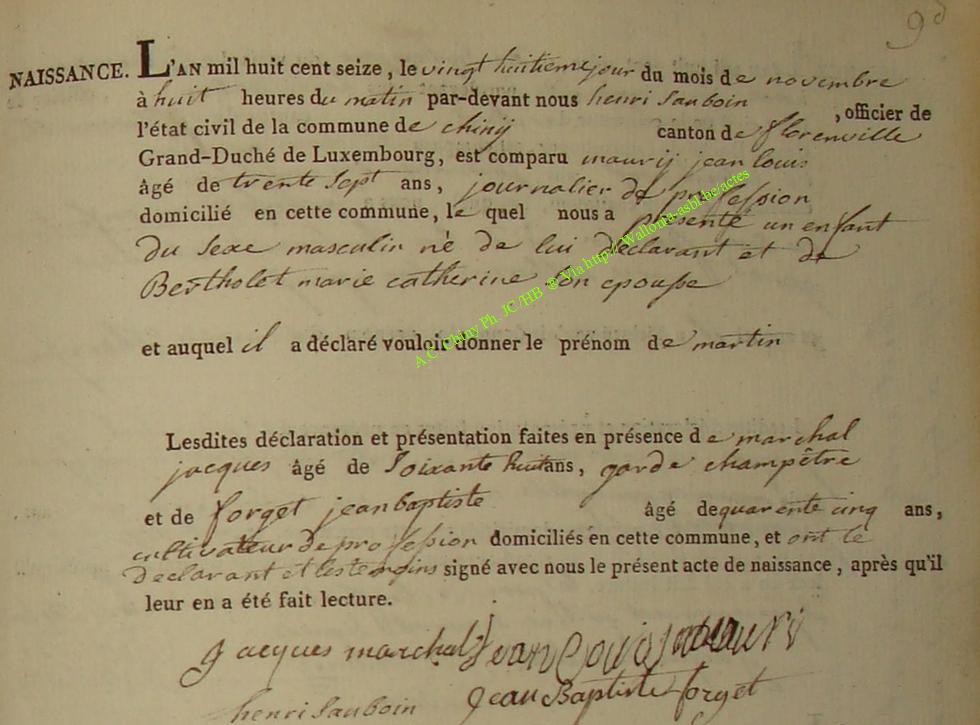 9d
NAISSANCE. L'AN mil huit cent seize, le vingt huitieme jour du mois de novembre
à huit heures du matin par-devant nous henri Sauboin, officier de
l'état civil de la commune de chiny canton de florenville
Grand-Duché de Luxembourg, est comparu maurij jean louis
âgé de trente sept ans, journalier de profession
domicilié en cette commune, le quel nous a présenté un enfant
du sexe masculin né de lui déclarant et de
Bertholet marie catherine son epouse
et auquel il a déclaré vouloir donner le prénom de martin
Lesdites déclaration et présentation faites en présence de marchal
jacques âgé de soixante huit ans, garde champêtre
et de forget jean baptiste âgé de quarente cinq ans,
cultivateur de profession domiciliés en cette commune, et ont le
declarant et les temoins signé avec nous le présent acte de naissance, après qu'il
leur en a été fait lecture.
Jacques marchal Jean Louis mauri
henri Sauboin Jean Baptiste forget
A.C. Chiny Ph. JC /HB ® Via http://Wallonia-asbl.be/actes